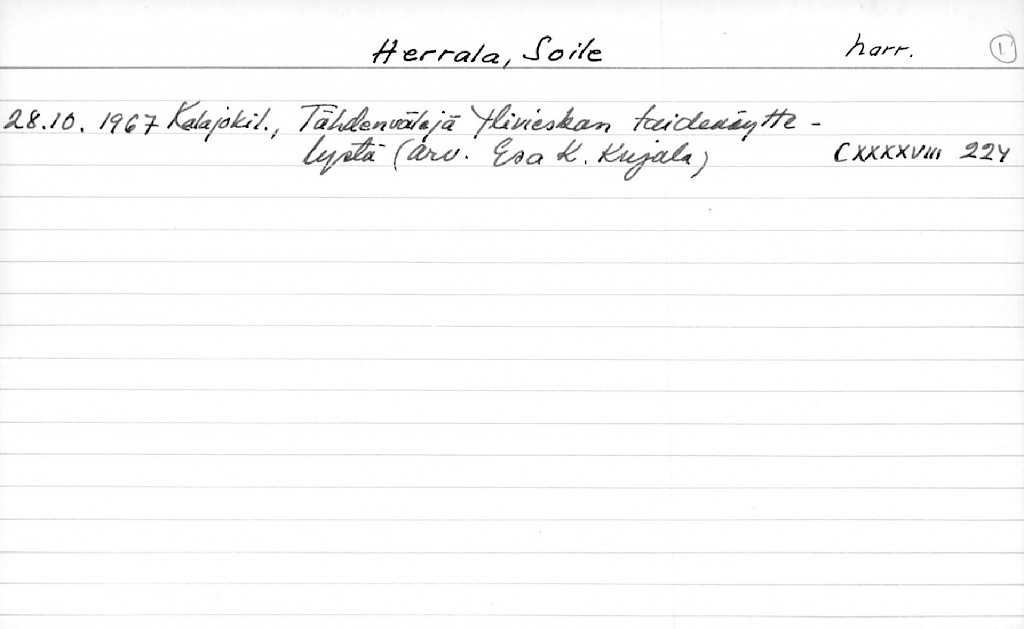 Herrala, Soile harr. 1
28.10.1967 Kalajokil., Tähdenvälejä Ylivieskan taidenäytte-
lystä (arv. Esa K. Kujala) CXXXXVIII 224